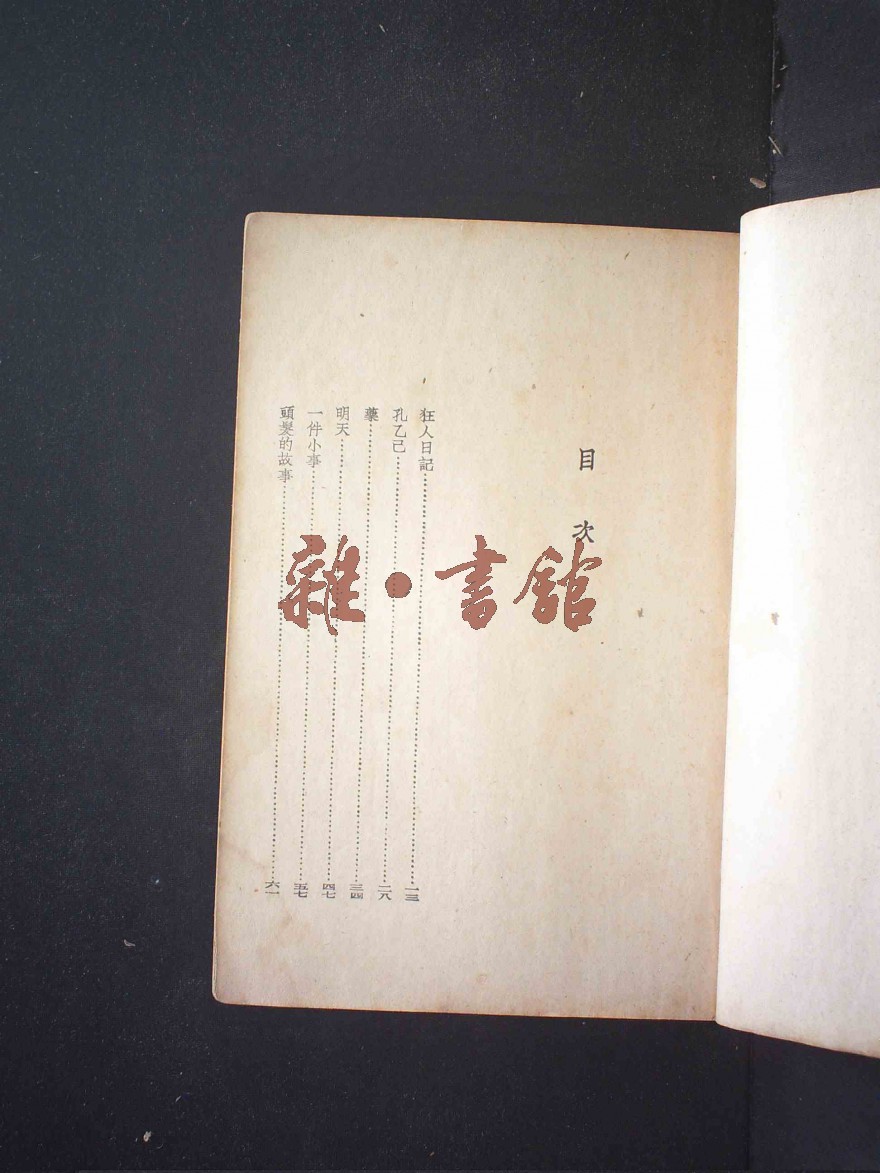 目次
狂人日記 一三
孔乙己 二八
藥 三四
明天 四七
一件小事 五七
頭髮的故事 六一
雜·書館